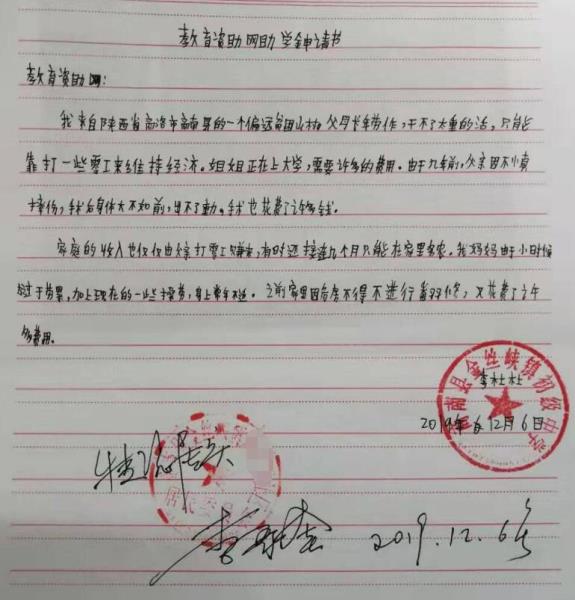 教育资助网助学金申请书
教育资助网：
我来自陕西省商洛市商南县的一个偏远贫困山村，父母长年劳作，干不了太重的活，只能
靠打一些零工来维持经济。姐姐正在上大学，需要许多的费用。由于几年前，父亲因不小真
摔伤，手术后身体大不如前，出不了勤。手术也花费了许多钱。
家庭的收入也仅仅由打零工赚来，有时还接连几个月只能在家里务农。我妈妈由于小时候
过于劳累，加上现在的一些，身上常年不适。之前家里因危房不得不进行翻修，又花费了许
多费用。
李杜杜
2019年12月6日
商南县金丝峡镇初级中学
2019.12.6